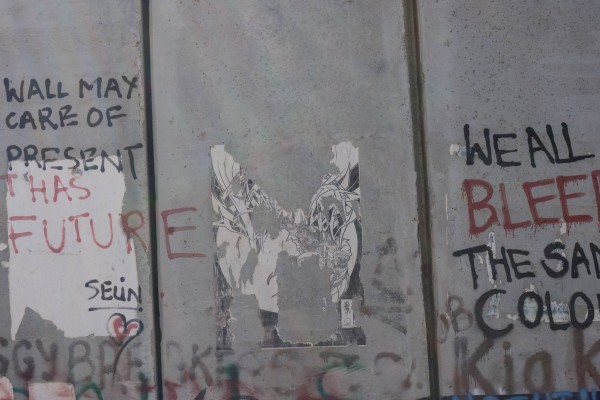 WALL MAY
CARE OF
PRESENT
T HAS
FUTURE
SELIN
WE ALL
BLEE
THE SAM
COLO